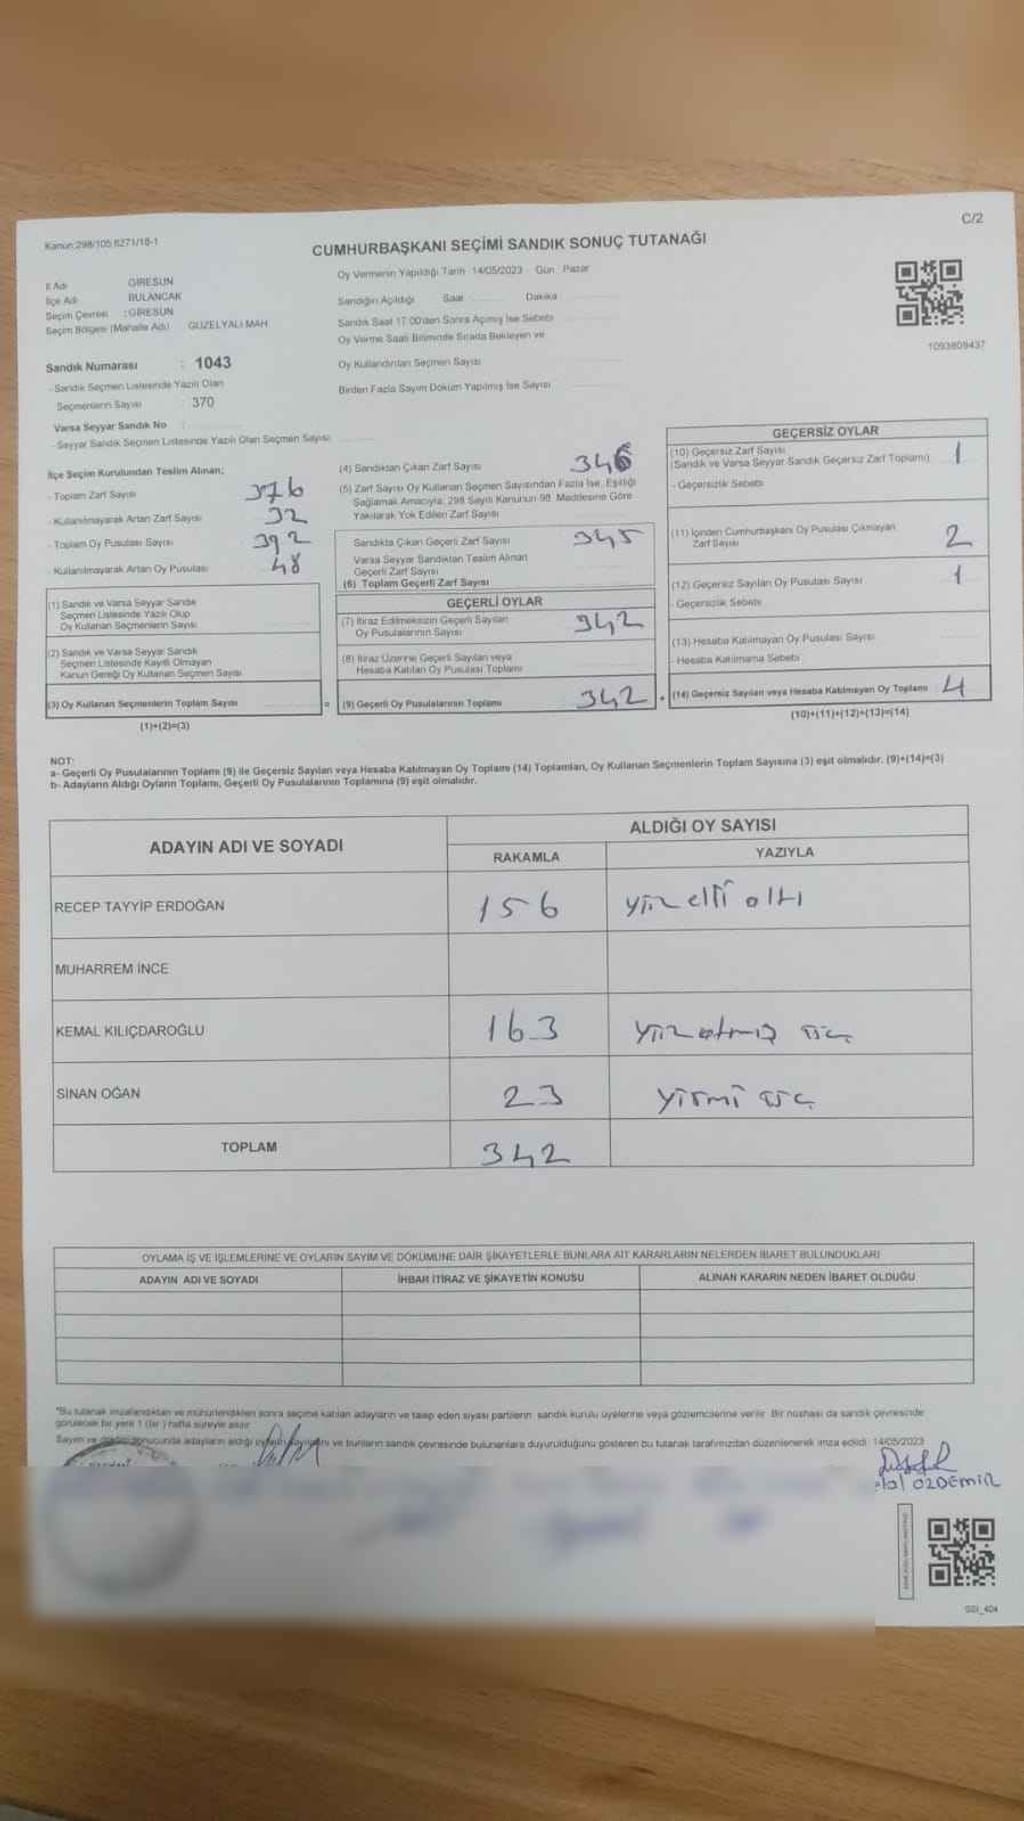 C/2
Kanun:298/105 6271/18-1
CUMHURBAŞKANI SEÇİMİ SANDIK SONUÇ TUTANAĞI
Oy Vermenin Yapıldığı Tarih 14/05/2023 Gün : Pazar
İl Adı GİRESUN
İlçe Adı BULANCAK
Seçim Çevresi : GİRESUN
Seçim Bölgesi (Mahalle Adı) GÜZELYALI MAH
Sandık Numarası : 1043
- Sandık Seçmen Listesinde Yazılı Olan
Seçmenlerin Sayısı : 370
Varsa Seyyar Sandık No
- Seyyar Sandık Seçmen Listesinde Yazılı Olan Seçmen Sayısı
Sandığın Açıldığı Saat Dakika
Sandık Saat 17:00'den Sonra Açılmış İse Sebebi
Oy Verme Saati Bitiminde Sırada Bekleyen ve
Oy Kullandırılan Seçmen Sayısı
Birden Fazla Sayım Döküm Yapılmış İse Sayısı
1093809437
İlçe Seçim Kurulundan Teslim Alınan:
- Toplam Zarf Sayısı 376
- Kullanılmayarak Artan Zarf Sayısı 32
- Toplam Oy Pusulası Sayısı 392
- Kullanılmayarak Artan Oy Pusulası 48
(1) Sandık ve Varsa Seyyar Sandık
Seçmen Listesinde Yazılı Olup
Oy Kullanan Seçmenlerin Sayısı
(2) Sandık ve Varsa Seyyar Sandık
Seçmen Listesinde Kayıtlı Olmayan
Kanun Gereği Oy Kullanan Seçmen Sayısı
(3) Oy Kullanan Seçmenlerin Toplam Sayısı
(1)+(2)=(3)
(4) Sandıktan Çıkan Zarf Sayısı 346
(5) Zarf Sayısı Oy Kullanan Seçmen Sayısından Fazla İse, Eşitliği
Sağlamak Amacıyla, 298 Sayılı Kanunun 98. Maddesine Göre
Yakılarak Yok Edilen Zarf Sayısı
Sandıkta Çıkan Geçerli Zarf Sayısı 345
Varsa Seyyar Sandıktan Teslim Alınan
Geçerli Zarf Sayısı
(6) Toplam Geçerli Zarf Sayısı
GEÇERLİ OYLAR
(7) İtiraz Edilmeksizin Geçerli Sayılan
Oy Pusulalarının Sayısı 342
(8) İtiraz Üzerine Geçerli Sayılan veya
Hesaba Katılan Oy Pusulası Toplamı
(9) Geçerli Oy Pusulalarının Toplamı 342
GEÇERSİZ OYLAR
(10) Geçersiz Zarf Sayısı
(Sandık ve Varsa Seyyar Sandık Geçersiz Zarf Toplamı) 1
- Geçersizlik Sebebi
(11) İçinden Cumhurbaşkanı Oy Pusulası Çıkmayan
Zarf Sayısı 2
(12) Geçersiz Sayılan Oy Pusulası Sayısı 1
- Geçersizlik Sebebi
(13) Hesaba Katılmayan Oy Pusulası Sayısı
- Hesaba Katılmama Sebebi
(14) Geçersiz Sayılan veya Hesaba Katılmayan Oy Toplamı 4
(10)+(11)+(12)+(13)=(14)
NOT:
a- Geçerli Oy Pusulalarının Toplamı (9) ile Geçersiz Sayılan veya Hesaba Katılmayan Oy Toplamı (14) Toplamları, Oy Kullanan Seçmenlerin Toplam Sayısına (3) eşit olmalıdır. (9)+(14)=(3)
b- Adayların Aldığı Oyların Toplamı, Geçerli Oy Pusulalarının Toplamına (9) eşit olmalıdır.
ADAYIN ADI VE SOYADI
ALDIĞI OY SAYISI
RAKAMLA YAZIYLA
RECEP TAYYİP ERDOĞAN 156 yüz elli altı
MUHARREM İNCE
KEMAL KILIÇDAROĞLU 163 yüz atmış üç
SİNAN OĞAN 23 yirmi üç
TOPLAM 342
OYLAMA İŞ VE İŞLEMLERİNE VE OYLARIN SAYIM VE DÖKÜMÜNE DAİR ŞİKAYETLERLE BUNLARA AİT KARARLARIN NELERDEN İBARET BULUNDUKLARI
ADAYIN ADI VE SOYADI İHBAR İTİRAZ VE ŞİKAYETİN KONUSU ALINAN KARARIN NEDEN İBARET OLDUĞU
*Bu tutanak imzalandıktan ve mühürlendikten sonra seçime katılan adayların ve talep eden siyasi partilerin sandık kurulu üyelerine veya gözlemcilerine verilir. Bir nüshası da sandık çevresinde
görülecek bir yere 1 (bir) hafta süreyle asılır.
Sayım ve döküm sonucunda adayların aldığı oyların sayısını ve bunların sandık çevresinde bulunanlara duyurulduğunu gösteren bu tutanak tarafımızdan düzenlenerek imza edildi. 14/05/2023
ÖZDEMİR